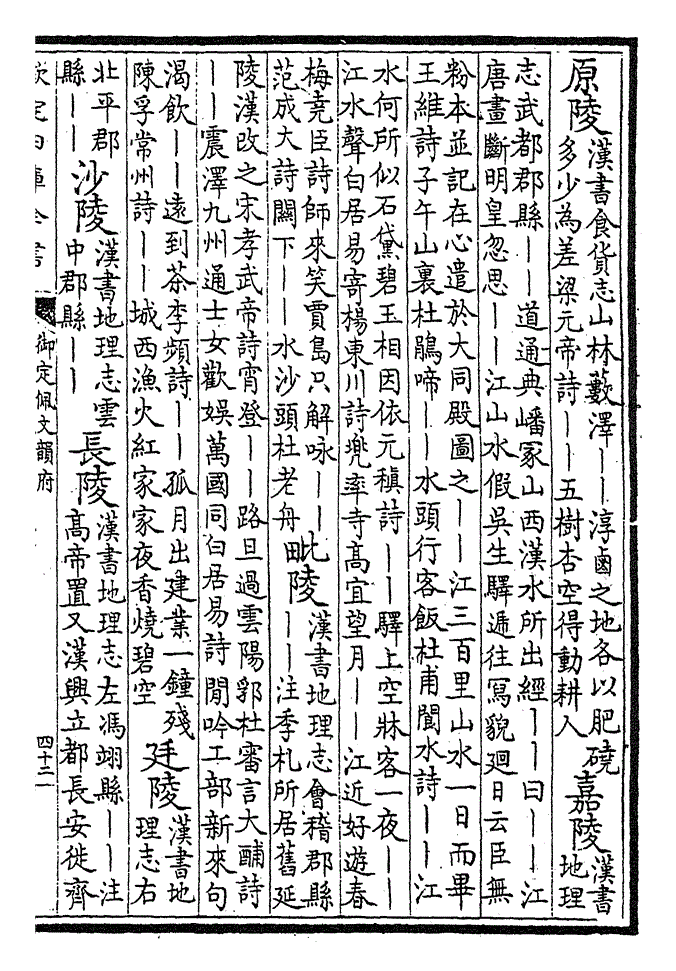 原陵
漢書食貨志山林藪澤——淳鹵之地各以肥磽
多少為差梁元帝詩——五樹杏空得動耕人
嘉陵
漢書
地理
志武都郡縣——道通典嶓冢山西漢水所出經——曰——江
唐畫斷明皇忽思——江山水假吳生驛遞往寫貌廻日云臣無
粉本並記在心遣於大同殿圖之——江三百里山水一日而畢
王維詩子午山裏杜鵑啼——水頭行客飯杜甫閬水詩——江
水何所似石黛碧玉相因依元稹詩——驛上空牀客一夜——
江水聲白居易寄楊東川詩兠率寺高宜望月——江近好遊春
梅堯臣詩師來笑賈島只解咏——
范成大詩闗下——水沙頭杜老舟
毗陵
漢書地理志會稽郡縣
——注季札所居舊延
陵漢改之宋孝武帝詩宵登——路旦過雲陽郛杜審言大酺詩
——震澤九州通士女歡娛萬國同白居易詩閒吟工部新來句
渴飲——遠到茶李頻詩——孤月出建業一鐘殘
陳孚常州詩——城西漁火紅家家夜香燒碧空
廷陵
漢書地
理志右
北平郡
縣——
沙陵
漢書地理志雲
中郡縣——
長陵
漢書地理志左馮翊縣——注
高帝置又漢興立都長安徙齊
欽定四庫全書
御定佩文韻府
四十二